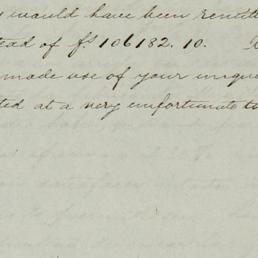 would have been remitt
tead of fs 106182.10.
made use of your uniqu
ted at a very unfortunate to